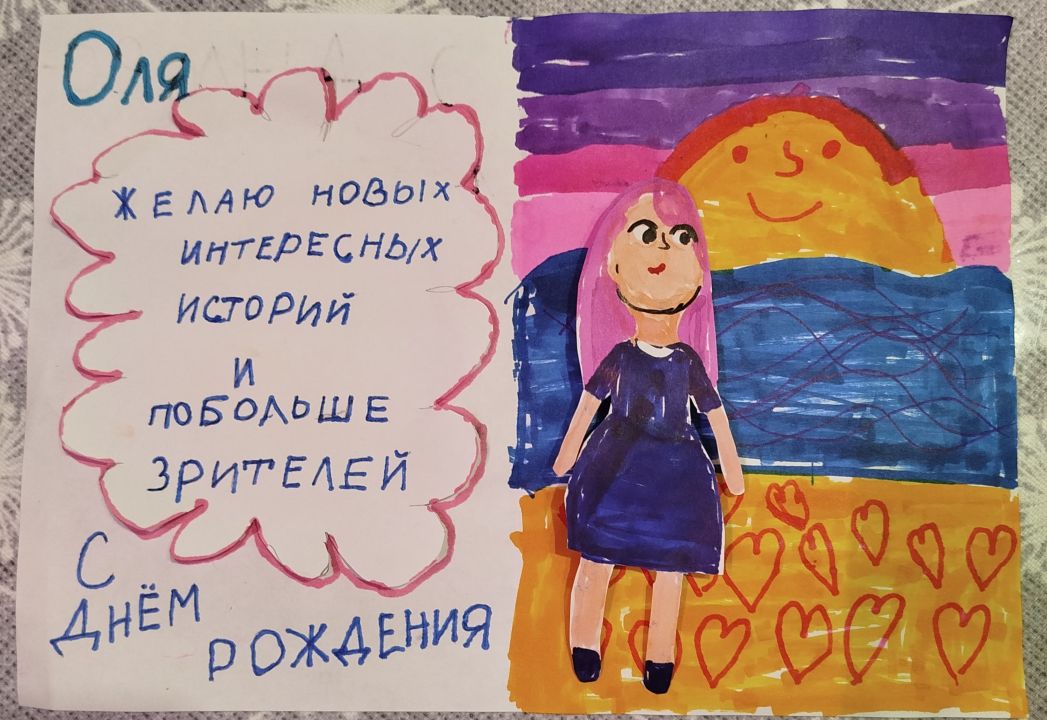 Оля
ЖЕЛАЮ НОВЫХ
ИНТЕРЕСНЫХ
ИСТОРИЙ
И
ПОБОЛЬШЕ
ЗРИТЕЛЕЙ
С
ДНЁМ
РОЖДЕНИЯ